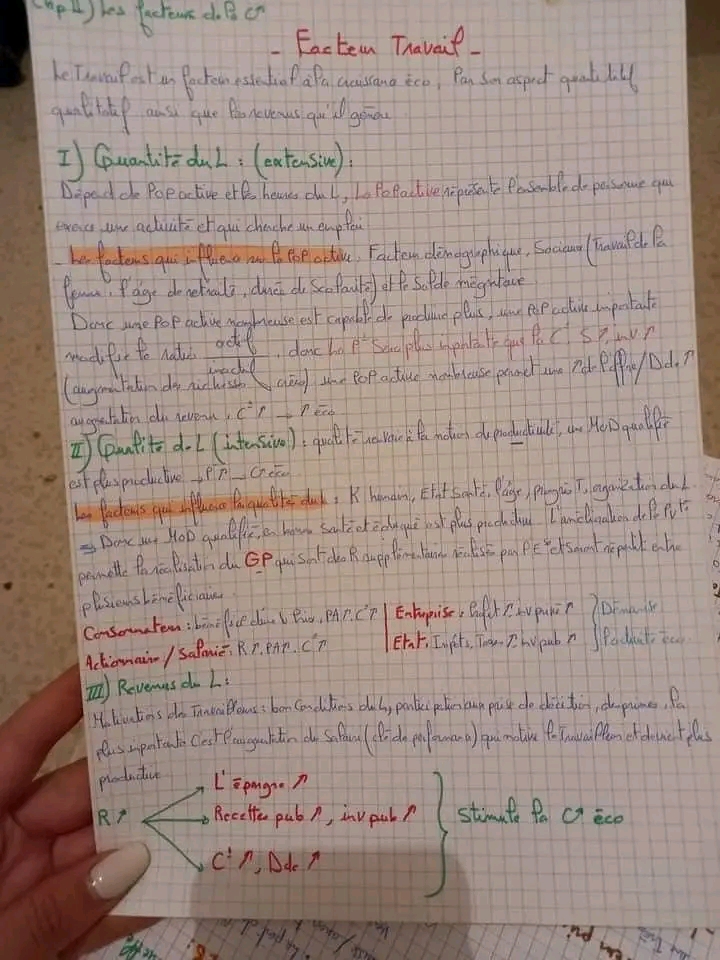 II) Les facteurs de la C↗
- Facteur Travail -
Le Travail est un facteur essentiel à la croissance éco, Par son aspect quantitatif
qualitatif ainsi que les revenus qu'il génère
I) Quantité du L : (extensive) :
Dépend de Pop active et les heures du L, La Pop active représente l'ensemble de personne qui
exerce une activité et qui cherche un emploi
- Les facteurs qui influence sur la POP active. Facteur démographique, Sociaux (Travail de la
femme, l'âge de retraite, durée de Scolarité) et le Solde migratoire
Donc une POP active nombreuse est capable de produire plus, une POP active importante
modifie le ratio actif / inactif, donc La P° Sera plus importante que la C° S↗, inv↗
(augmentation des richesses créés) une POP active nombreuse permet une ↗ de l'offre/Dde ↗
augmentation du revenu, C° ↗ → ↗ éco
II) Qualité du L (intensive) : qualité renvoie à la notion de productivité, une MOD qualifié
est plus productive → P°↗ → C↗ éco
Les facteurs qui influence la qualité du L : K humain, Etat Santé, l'âge, progrès T, organisation du L
⇒ Donc une MOD qualifié, en bonne santé et éduqué est plus productive. L'amélioration de la Pvté
permette la réalisation du GP qui sont des R supplémentaire réalisée par l'E se et seront répartit entre
plusieurs bénéficiaires
Consommateur : bénéficie d'une ↓ Prix, PA↗, C°↗ | Entreprise : Profit ↗ inv privé ↗ } Démarche
Actionnaire / Salarié : R↗, PA↗, C°↗ | Etat, Impôts, Taxes ↗ inv pub ↗ } éco
III) Revenus du L :
Motivations des Travailleurs : bon Conditions du L, participation aux prise de décision, des primes, la
plus importante C'est l'augmentation du Salaire (clé de performance) qui motive le Travailleur et devient plus
productive
R ↗
L'épargne ↗
Recettes pub ↗, inv pub ↗
C° ↗, Dde ↗
} Stimule la C↗ éco